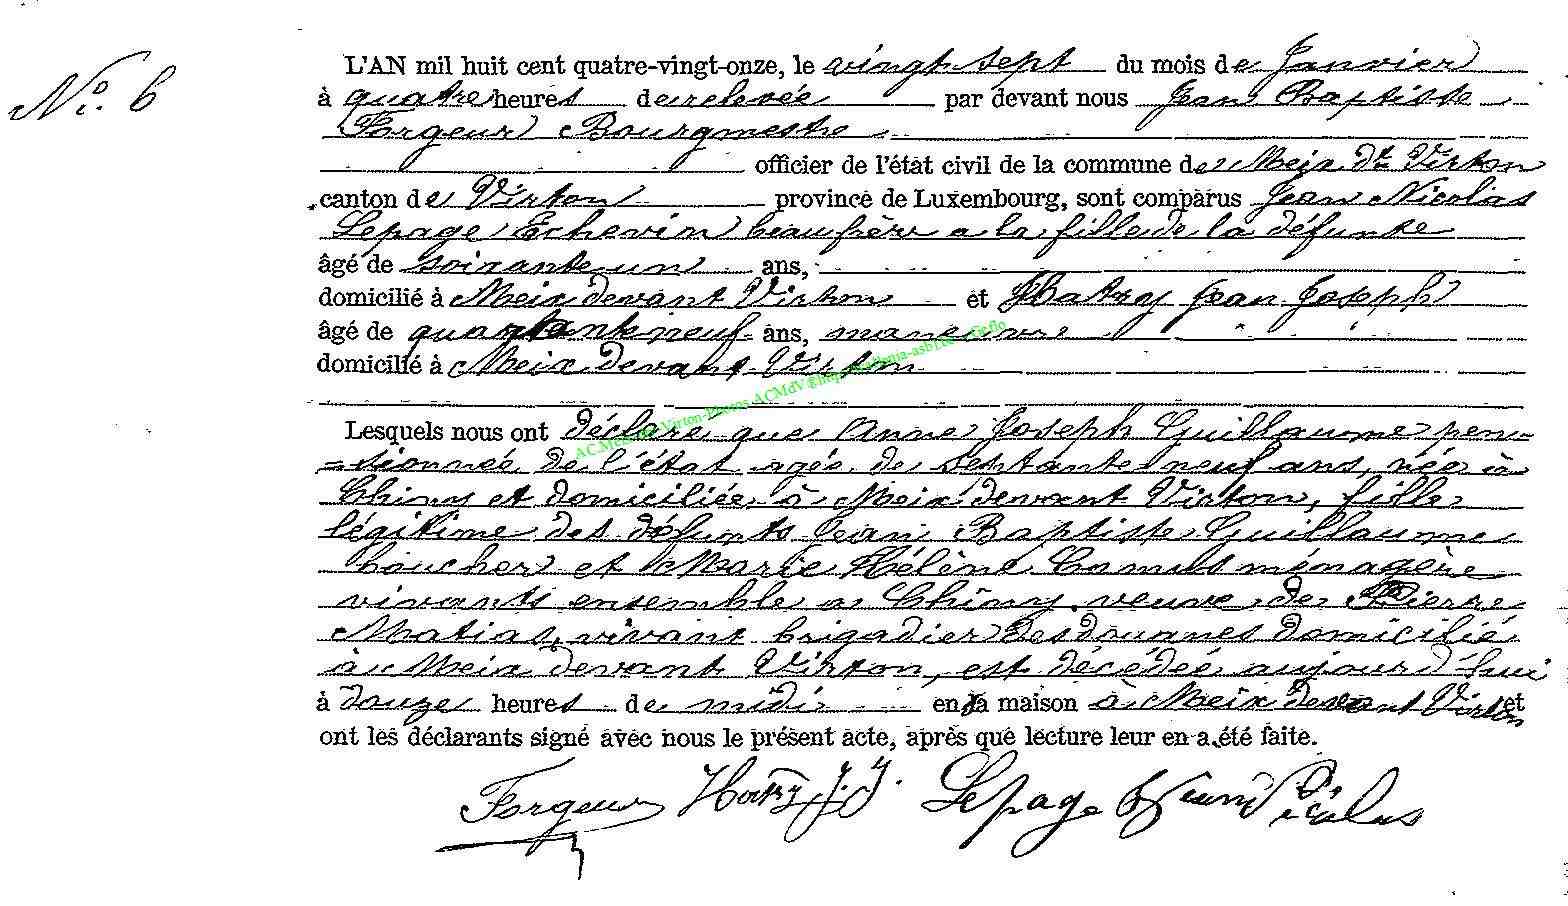 N°. 6
L'AN mil huit cent quatre-vingt-onze, le vingt-sept du mois de Janvier
à quatre heures de relevée par devant nous Jean Baptiste
Forgeur Bourgmestre
officier de l'état civil de la commune de Meix dt Virton
canton de Virton province de Luxembourg, sont comparus Jean Nicolas
Lepage Echevin beaufrère a la fille de la défunte
âgé de soixante un ans,
domicilié à Meix devant Virton et Hatry Jean Joseph
âgé de quarante neuf ans, manœuvre
domicilié à Meix devant Virton
Lesquels nous ont déclaré que Anne Joseph Guillaume pen-
-sionnée de l'état agée de septante neuf ans, née à
Chiny et domiciliée à Meix devant Virton, fille
légitime des défunts Jean Baptiste Guillaume
boucher et Marie Hélène Camus ménagère
vivants ensemble a Chiny, veuve de Pierre
Matias, vivant brigadier des douanes domicilié
à Meix devant Virton, est décédée aujourd'hui
à douze heures de midi en sa maison à Meix devant Virton et
ont les déclarants signé avec nous le présent acte, après que lecture leur en a été faite.
Forgeur Hatry J. J. Lepage Jean Nicolas